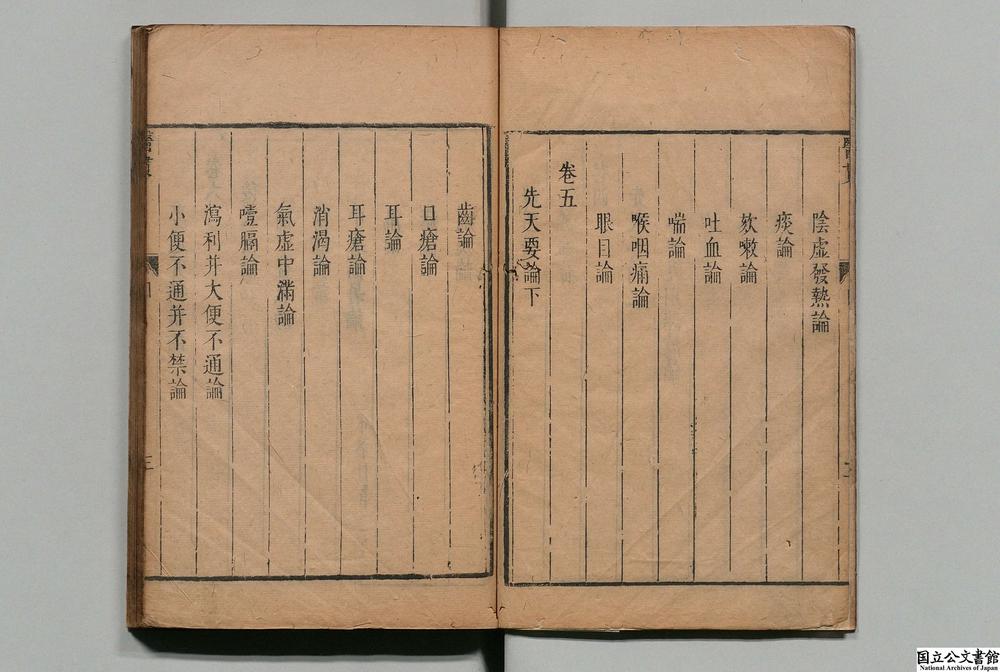 陰虛發熱論
痰論
欬嗽論
吐血論
喘論
喉咽痛論
眼目論
卷五
先天要論下
齒論
口瘡論
耳論
耳瘡論
消渴論
氣虛中滿論
噎膈論
瀉利并大便不通論
小便不通并不禁論
三
国立公文書館
National Archives of Japan